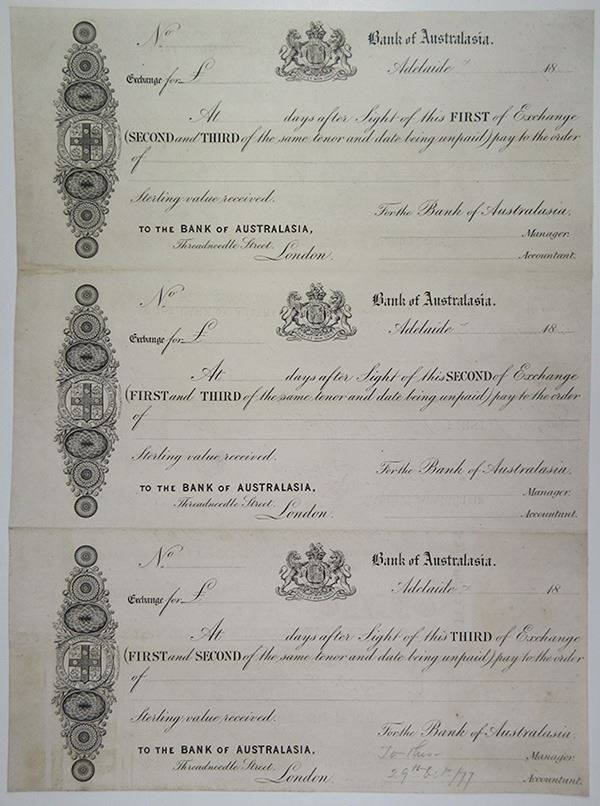 No
Bank of Australasia.
Adelaide 18
Exchange for £
At days after Sight of this FIRST of Exchange
(SECOND and THIRD of the same tenor and date being unpaid) pay to the order
of
Sterling value received.
For the Bank of Australasia.
TO THE BANK OF AUSTRALASIA,
Manager.
Threadneedle Street, London.
Accountant.
No
Bank of Australasia.
Adelaide 18
Exchange for £
At days after Sight of this SECOND of Exchange
(FIRST and THIRD of the same tenor and date being unpaid) pay to the order
of
Sterling value received.
For the Bank of Australasia.
TO THE BANK OF AUSTRALASIA,
Manager.
Threadneedle Street, London.
Accountant.
No
Bank of Australasia.
Adelaide 18
Exchange for £
At days after Sight of this THIRD of Exchange
(FIRST and SECOND of the same tenor and date being unpaid) pay to the order
of
Sterling value received.
For the Bank of Australasia.
To this
TO THE BANK OF AUSTRALASIA,
Manager.
Threadneedle Street, London.
29th Oct /77
Accountant.